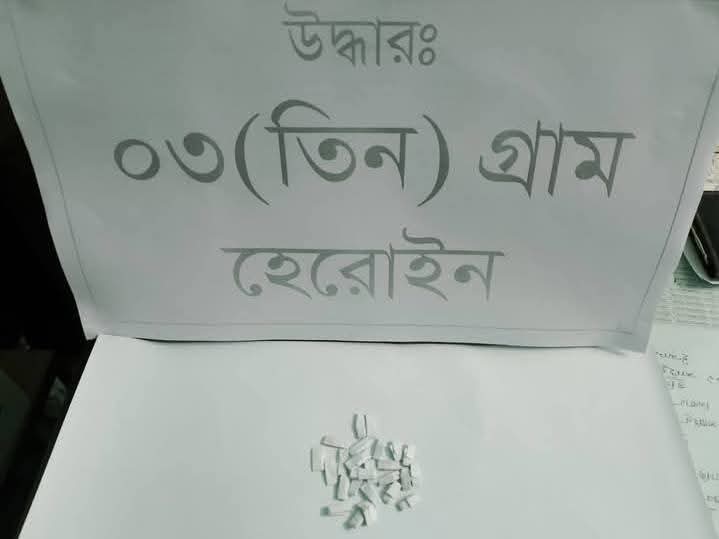 উদ্ধারঃ
০৩(তিন) গ্রাম
হেরোইন